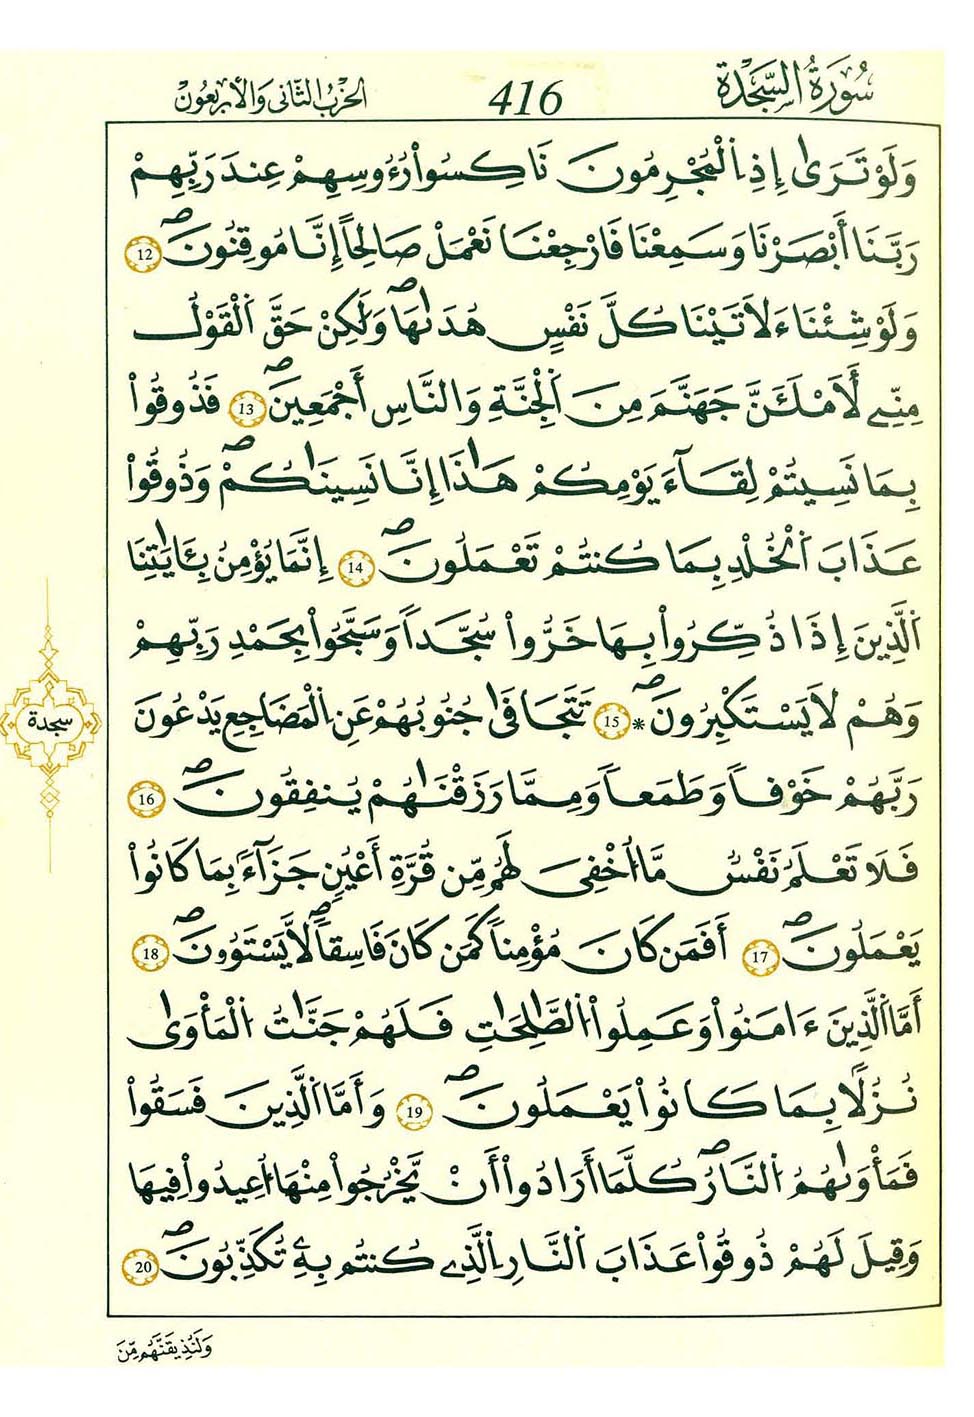 سُورَةُ السَّجْدَةِ 416 الحِزْبُ الثَّانِي وَالأَرْبَعُونْ
وَلَوْ تَرَىٰ إِذِ اِ۬لْمُجْرِمُونَ نَاكِسُواْ رُءُوسِهِمْ عِندَ رَبِّهِمْ
رَبَّنَا أَبْصَرْنَا وَسَمِعْنَا فَارْجِعْنَا نَعْمَلْ صَالِحاً إِنَّا مُوقِنُونَۖ 12
وَلَوْ شِئْنَا ءَلَاتَيْنَا كُلَّ نَفْسٍ هُدَىٰهَاۖ وَلَٰكِنْ حَقَّ اَ۬لْقَوْلُ
مِنِّے لَأَمْلَـَٔنَّ جَهَنَّمَ مِنَ اَ۬لْجِنَّةِ وَالنَّاسِ أَجْمَعِينَۖ 13 فَذُوقُواْ
بِمَا نَسِيتُمْ لِقَآءَ يَوْمِكُمْ هَٰذَا إِنَّا نَسِينَٰكُمْۖ وَذُوقُواْ
عَذَابَ اَ۬لْخُلْدِ بِمَا كُنتُمْ تَعْمَلُونَۖ 14 إِنَّمَا يُؤْمِنُ بِـَٔايَٰتِنَا
اَ۬لَّذِينَ إِذَا ذُكِّرُواْ بِهَا خَرُّواْ سُجَّداً وَسَبَّحُواْ بِحَمْدِ رَبِّهِمْ
وَهُمْ لَا يَسْتَكْبِرُونَۖ ۞ 15 تَتَجَافَىٰ جُنُوبُهُمْ عَنِ اِ۬لْمَضَاجِعِ يَدْعُونَ
سجدة
رَبَّهُمْ خَوْفاً وَطَمَعاً وَمِمَّا رَزَقْنَٰهُمْ يُنفِقُونَۖ 16
فَلَا تَعْلَمُ نَفْسٌ مَّا أُخْفِىَ لَهُم مِّن قُرَّةِ أَعْيُنٍ جَزَآءً بِمَا كَانُواْ
يَعْمَلُونَۖ 17 أَفَمَن كَانَ مُؤْمِناً كَمَن كَانَ فَاسِقاًۖ لَّا يَسْتَوُونَۖ 18
أَمَّا اَ۬لَّذِينَ ءَامَنُواْ وَعَمِلُواْ اُ۬لصَّٰلِحَٰتِ فَلَهُمْ جَنَّٰتُ اُ۬لْمَأْوَىٰ
نُزُلًا بِمَا كَانُواْ يَعْمَلُونَۖ 19 وَأَمَّا اَ۬لَّذِينَ فَسَقُواْ
فَمَأْوَىٰهُمُ اُ۬لنَّارُۖ كُلَّمَا أَرَادُواْ أَنْ يَّخْرُجُواْ مِنْهَا أُعِيدُواْ فِيهَا
وَقِيلَ لَهُمْ ذُوقُواْ عَذَابَ اَ۬لنَّارِ اِ۬لَّذِے كُنتُم بِهِۦ تُكَذِّبُونَۖ 20
وَلَنُذِيقَنَّهُم مِّنَ